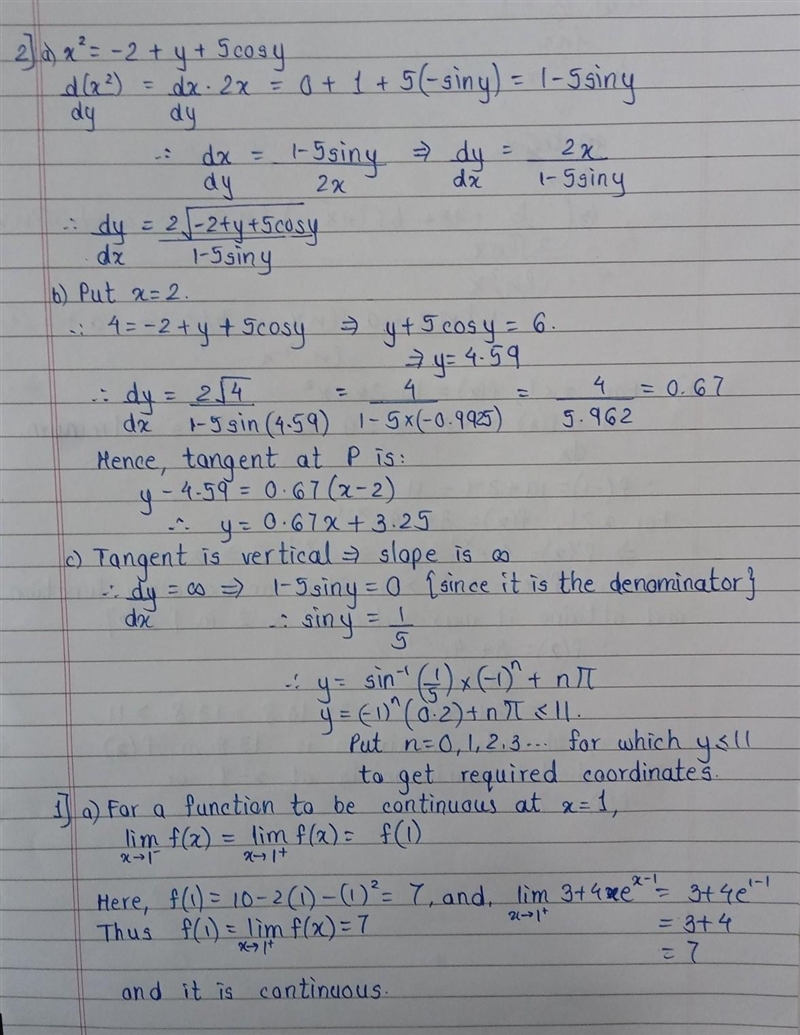 2] a) x² = -2 + y + 5cosy
d(x²)/dy = dx/dy · 2x = 0 + 1 + 5(-siny) = 1-5siny
∴ dx/dy = (1-5siny)/2x ⇒ dy/dx = 2x/(1-5siny)
∴ dy/dx = 2√(-2+y+5cosy)/(1-5siny)
b) Put x=2.
∴ 4 = -2 + y + 5cosy ⇒ y + 5cosy = 6.
⇒ y = 4.59
∴ dy/dx = 2√4/(1-5sin(4.59)) = 4/(1-5×(-0.9925)) = 4/5.962 = 0.67
Hence, tangent at P is:
y - 4.59 = 0.67(x-2)
∴ y = 0.67x + 3.25
c) Tangent is vertical ⇒ slope is ∞
∴ dy/dx = ∞ ⇒ 1-5siny = 0 {since it is the denominator}
∴ siny = 1/5
∴ y = sin⁻¹(1/5) × (-1)ⁿ + nπ
y = (-1)ⁿ(0.2) + nπ ≤ 11.
Put n=0,1,2,3... for which y≤11
to get required coordinates.
1] a) For a function to be continuous at x=1,
lim x→1⁻ f(x) = lim x→1⁺ f(x) = f(1)
Here, f(1) = 10-2(1)-(1)² = 7, and, lim x→1⁺ 3+4xe^(x-1) = 3+4e^(1-1)
Thus f(1) = lim x→1⁺ f(x) = 7 = 3+4
= 7
and it is continuous.